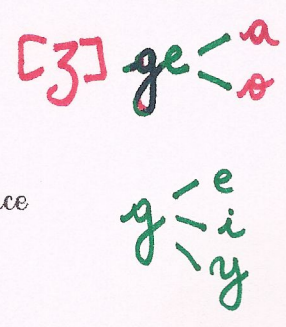 [ʒ] ge a
o
ce
g e
i
y